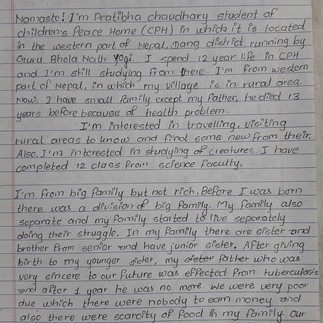 Namaste! I'm Pratibha chaudhary student of
children's Peace Home (CPH) in which it is located
in the western part of Nepal, Dang district running by
Guru Bhola Nath Yogi. I spend 12 year life in CPH
and I'm still studying from there. I'm from western
part of Nepal, in which my village is in rural area.
Now. I have small family except my Father, he died 13
years before because of health problem.
I'm interested in travelling, visiting
rural areas to know and find some new from their.
Also, I'm interested in studying of creatures. I have
completed 12 class from science faculty.
I'm from big family but not rich. Before I was born
there was a division of big Family. My family also
separate and my family started to live seperately
doing their struggle. In my family there are sister and
brother from senior and have junior sister. After giving
birth to my younger sister, my sister Father who was
very sincere to our future was effected from tuberculosis
and after 1 year he was no more. We were very poor
due which there were nobody to earn money and
also there were scarcity of food in my family. Our